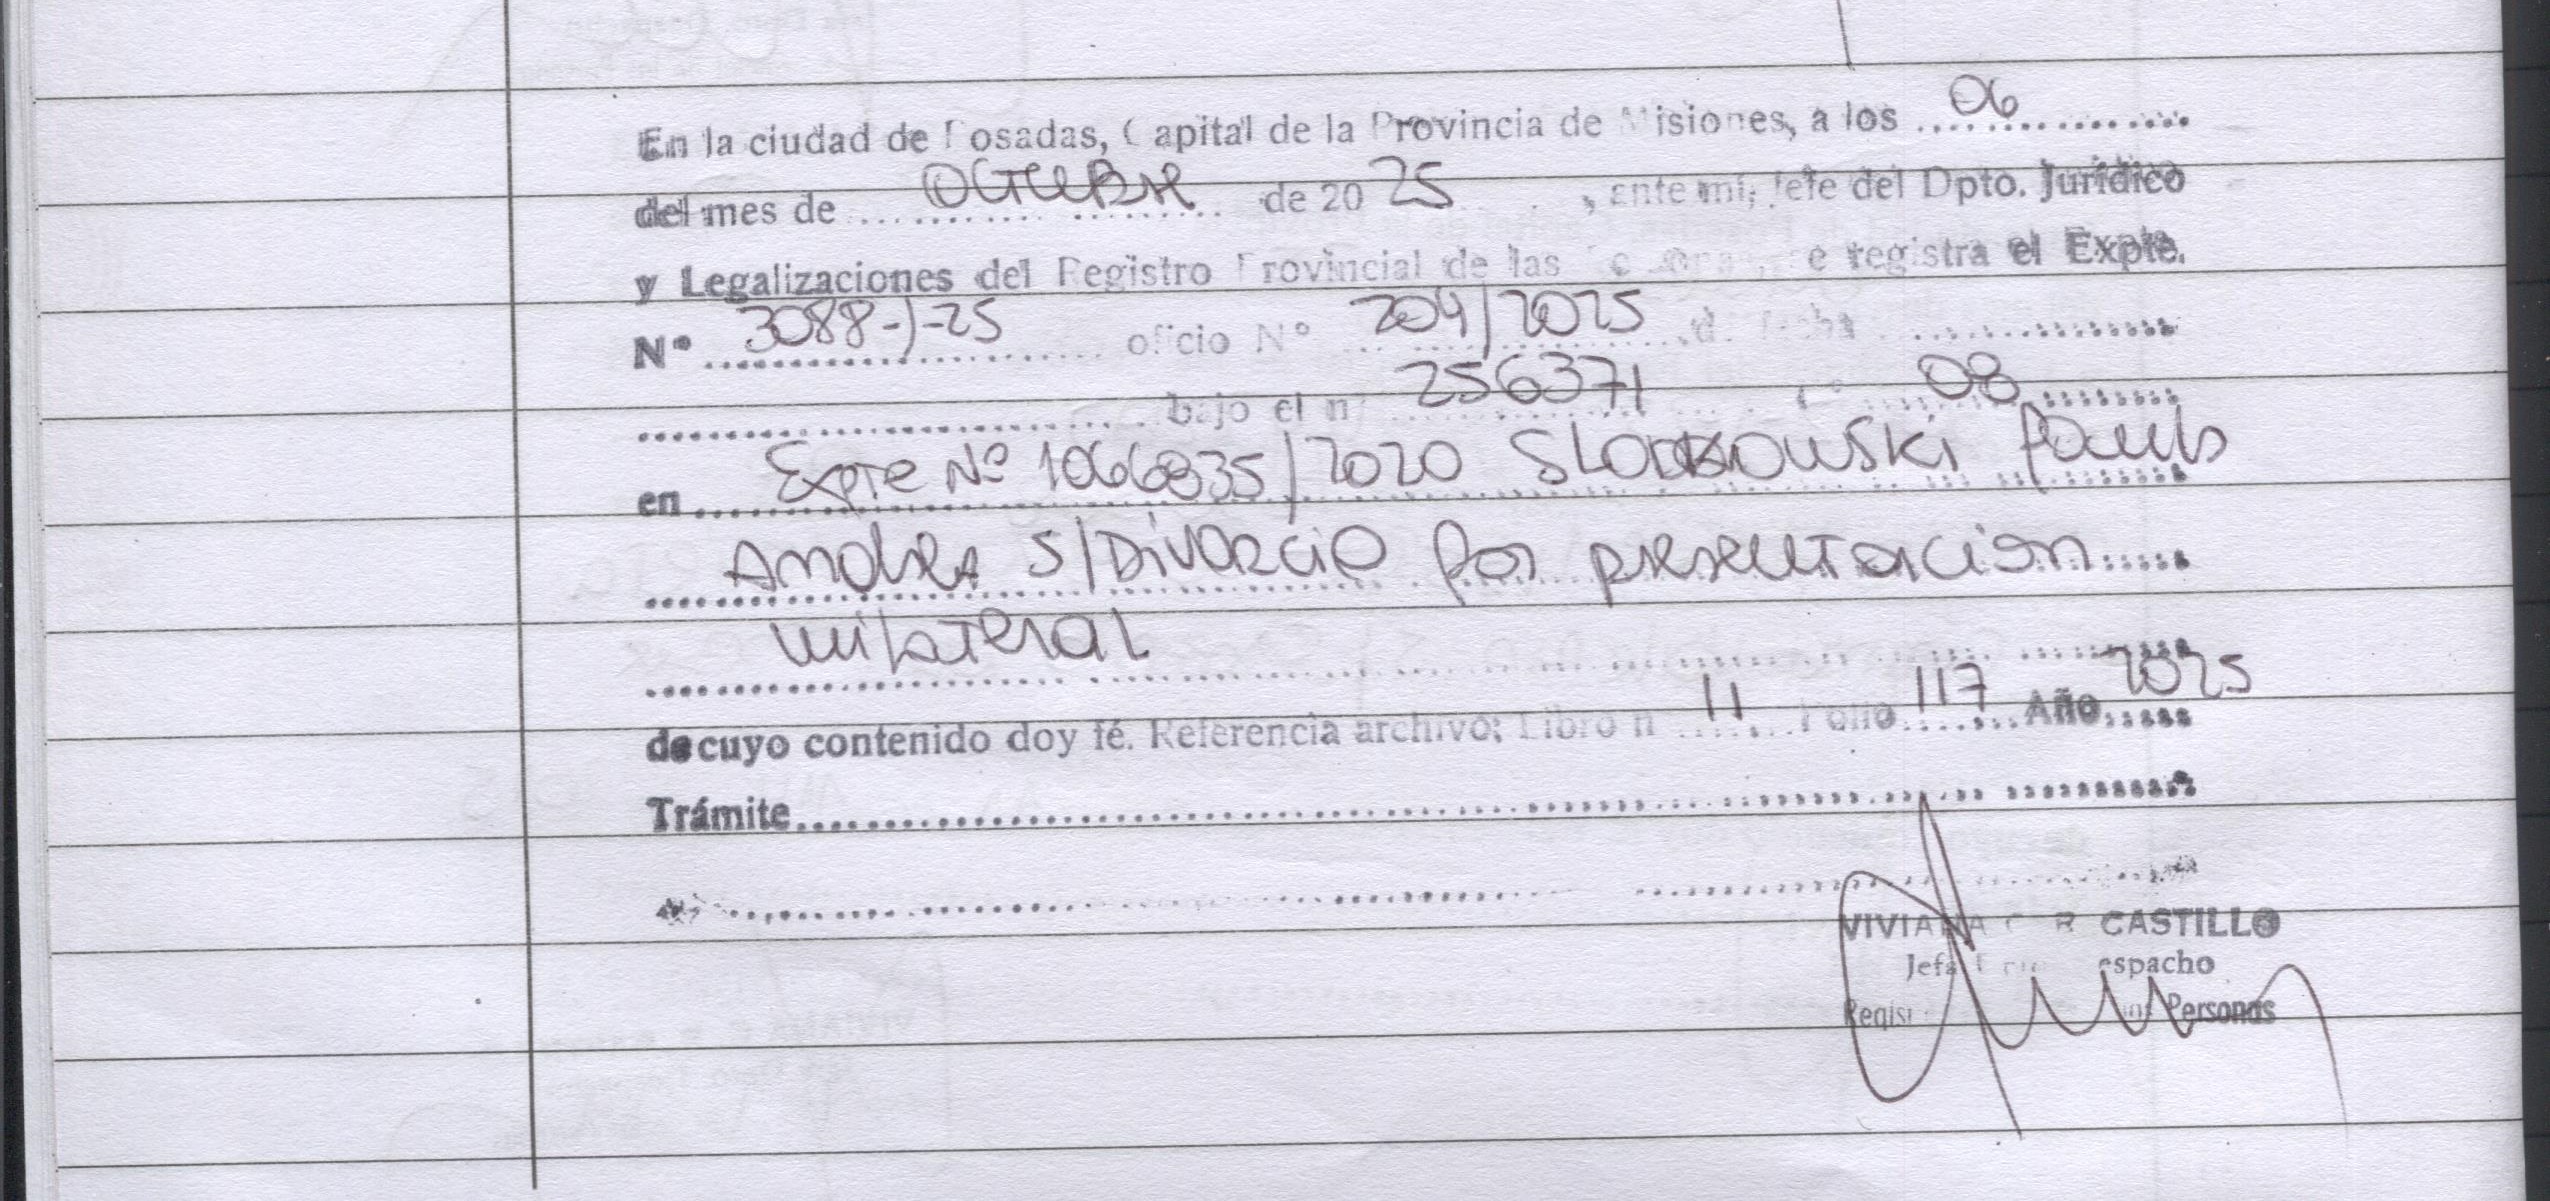 En la ciudad de Posadas, Capital de la Provincia de Misiones, a los 06
del mes de OCTUBRE de 20 25, ante mí, Jefe del Dpto. Jurídico
y Legalizaciones del Registro Provincial de las Personas, se registra el Expte.
Nº 3088-J-25 oficio Nº 204/2025 de fecha
bajo el nº 256371 08
en Expte Nº 1066835/2020 SLODKOWSKI Paulo
Andrea S/Divorcio por presentacion
unilateral
de cuyo contenido doy fé. Referencia archivo: Libro n 11 Folio 117 Año 2025
Trámite
VIVIANA R CASTILLO
Jefa espacho
Personas